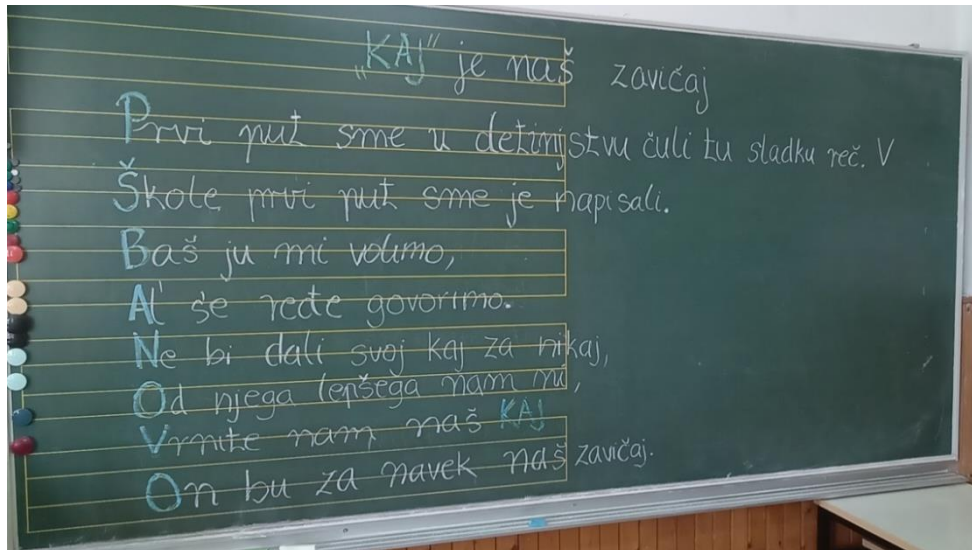 „KAJ" je naš zavičaj
Prvi put sme u detinjstvu čuli tu sladku reč. V
Škole prvi put sme je napisali.
Baš ju mi volimo,
Al' se ređe govorimo.
Ne bi dali svoj kaj za nikaj,
Od njega lepšega nam ni,
Vrnite nam naš KAJ
On bu za navek naš zavičaj.